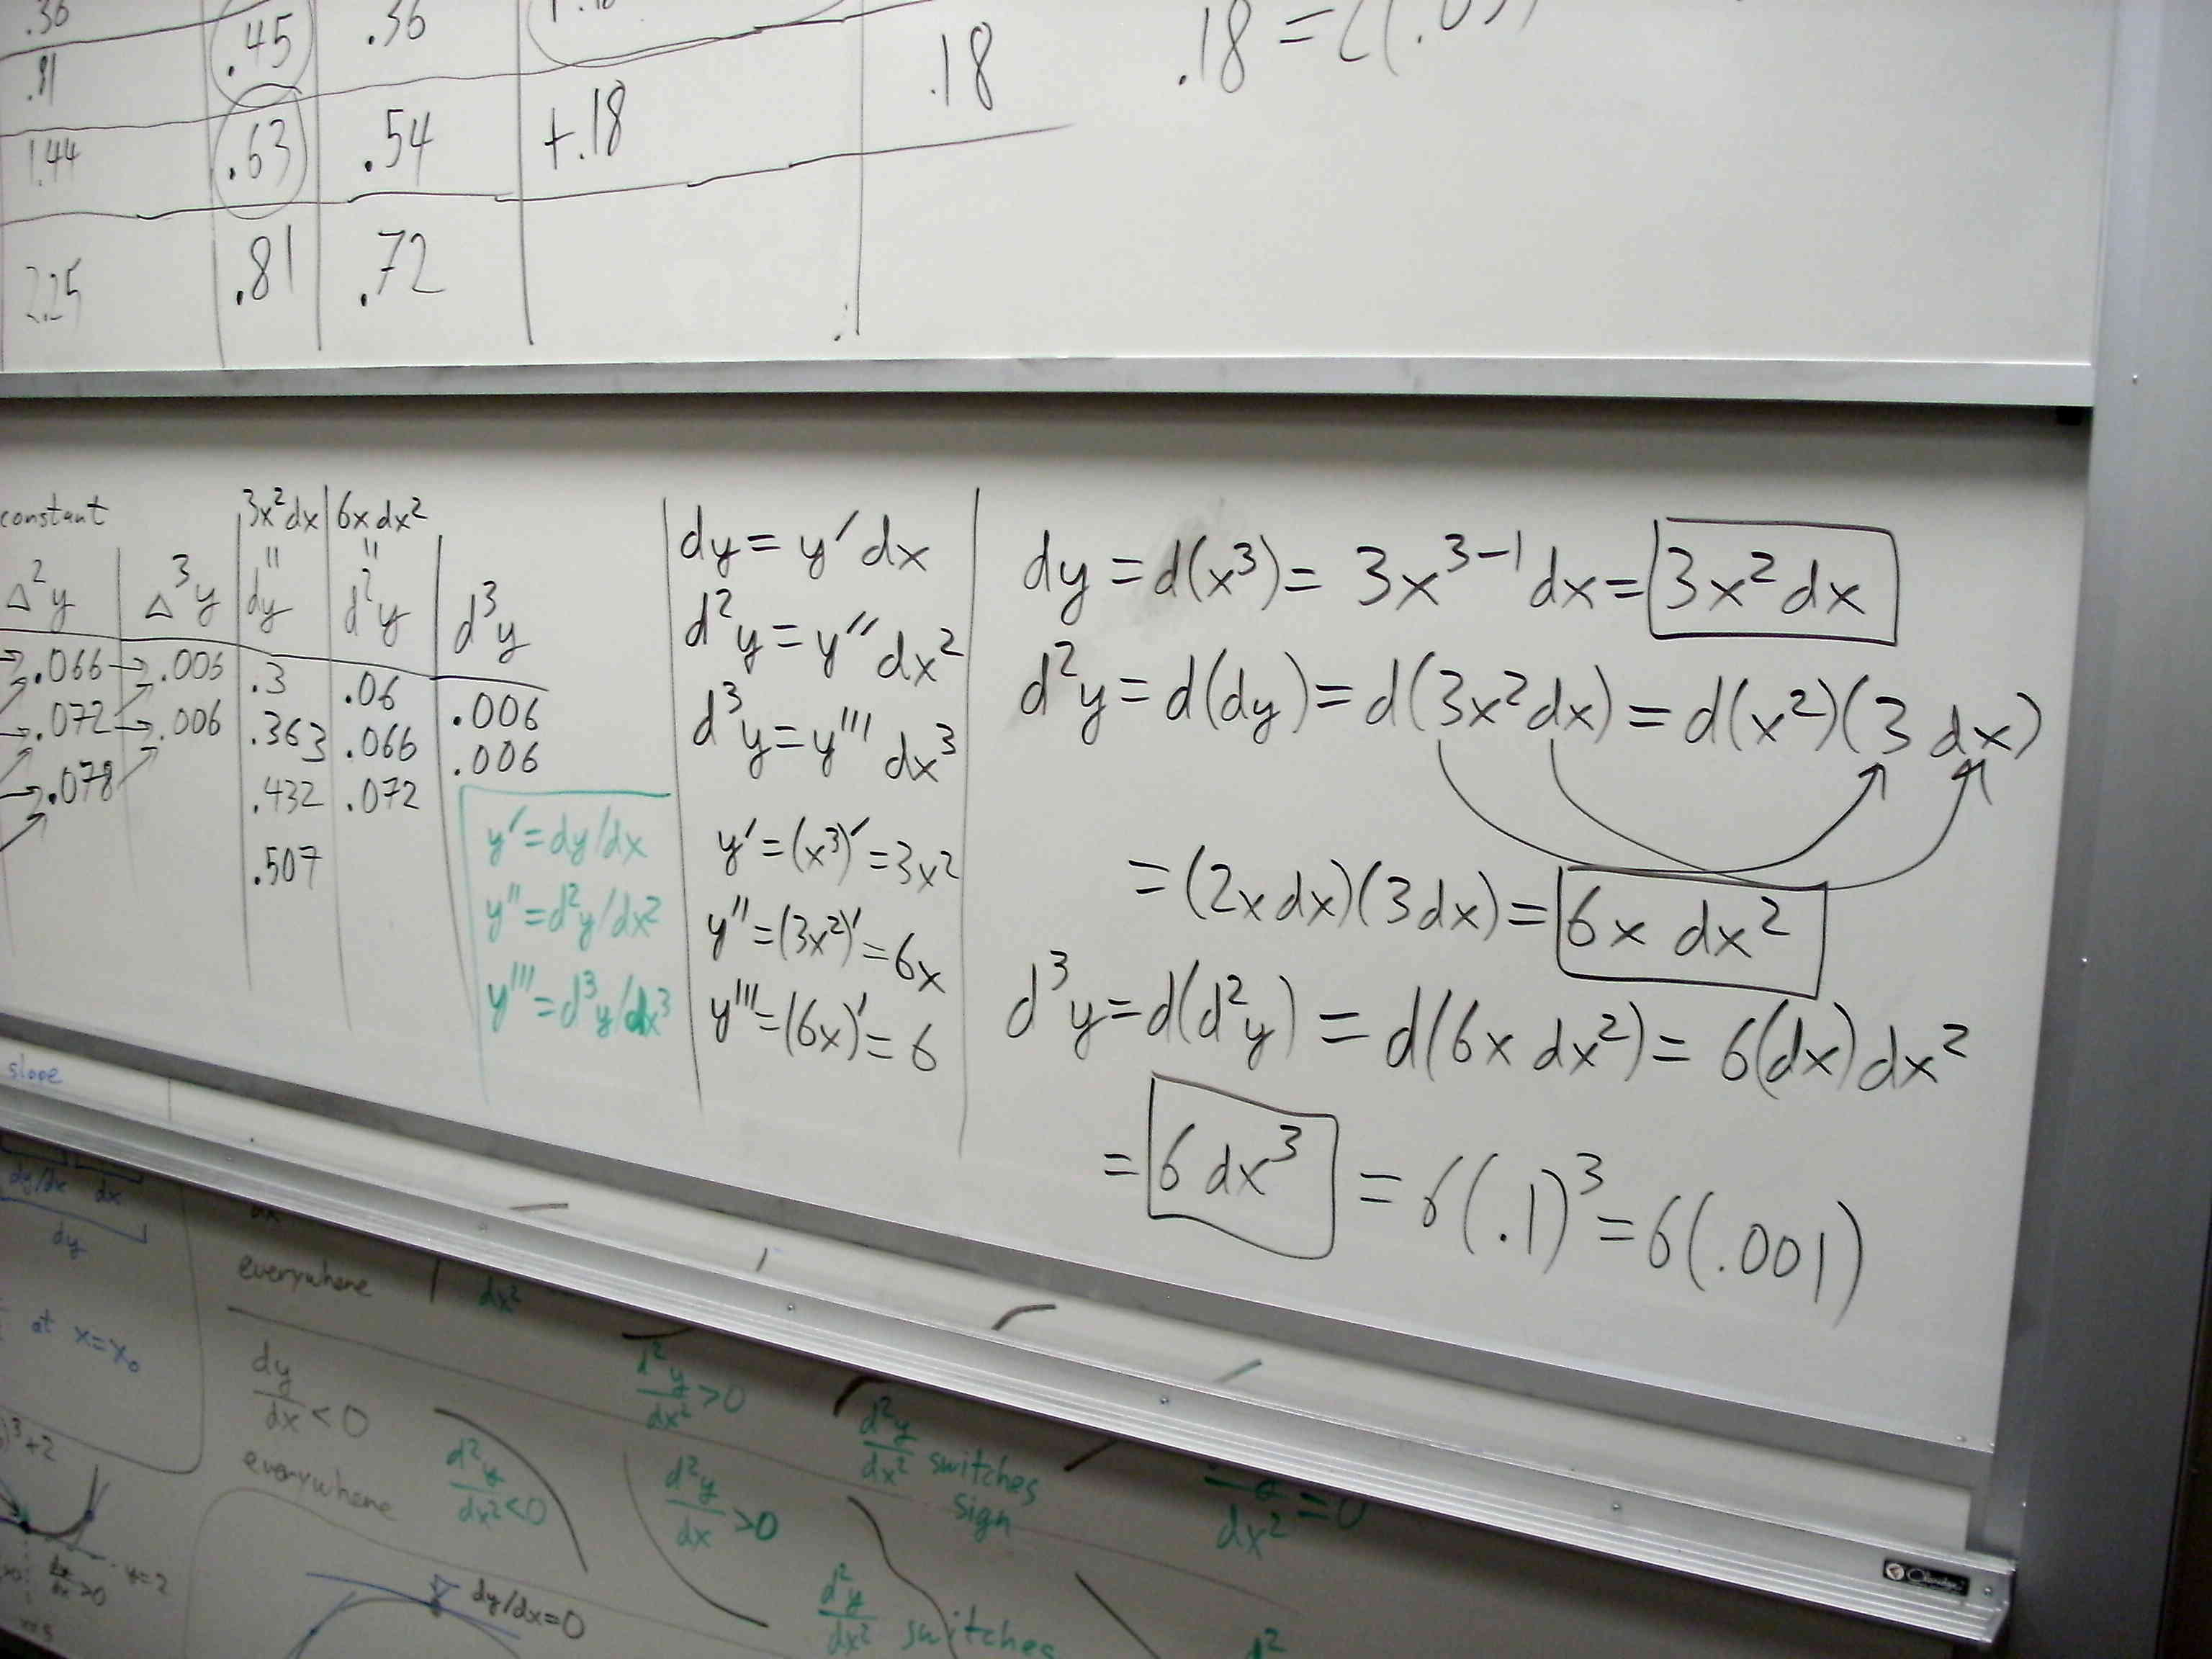 .36 .45 .36
.81 .18 .18 =
1.44 .63 .54 +.18
2.25 .81 .72
constant 3x²dx 6x dx²
" "
Δ²y Δ³y dy d²y d³y
.066 → .006 .3 .06 .006
.072 → .006 .363 .066 .006
.078 .432 .072
.507
y′=dy/dx
y″=d²y/dx²
y‴=d³y/dx³
dy = y′ dx
d²y = y″ dx²
d³y = y‴ dx³
y′=(x³)′=3x²
y″=(3x²)′=6x
y‴=(6x)′=6
dy = d(x³) = 3x³⁻¹ dx = 3x² dx
d²y = d(dy) = d(3x² dx) = d(x²)(3 dx)
= (2x dx)(3 dx) = 6x dx²
d³y = d(d²y) = d(6x dx²) = 6(dx) dx²
= 6 dx³ = 6(.1)³ = 6(.001)
slope
dy/dx dx
dy
at x=x₀
)³+2
everywhere dx²
dy/dx < 0
everywhere
d²y/dx² > 0
d²y/dx² < 0
d²y/dx > 0
d²y/dx² switches
sign
dx² = 0
dy/dx=0
d²y/dx² switches
d²